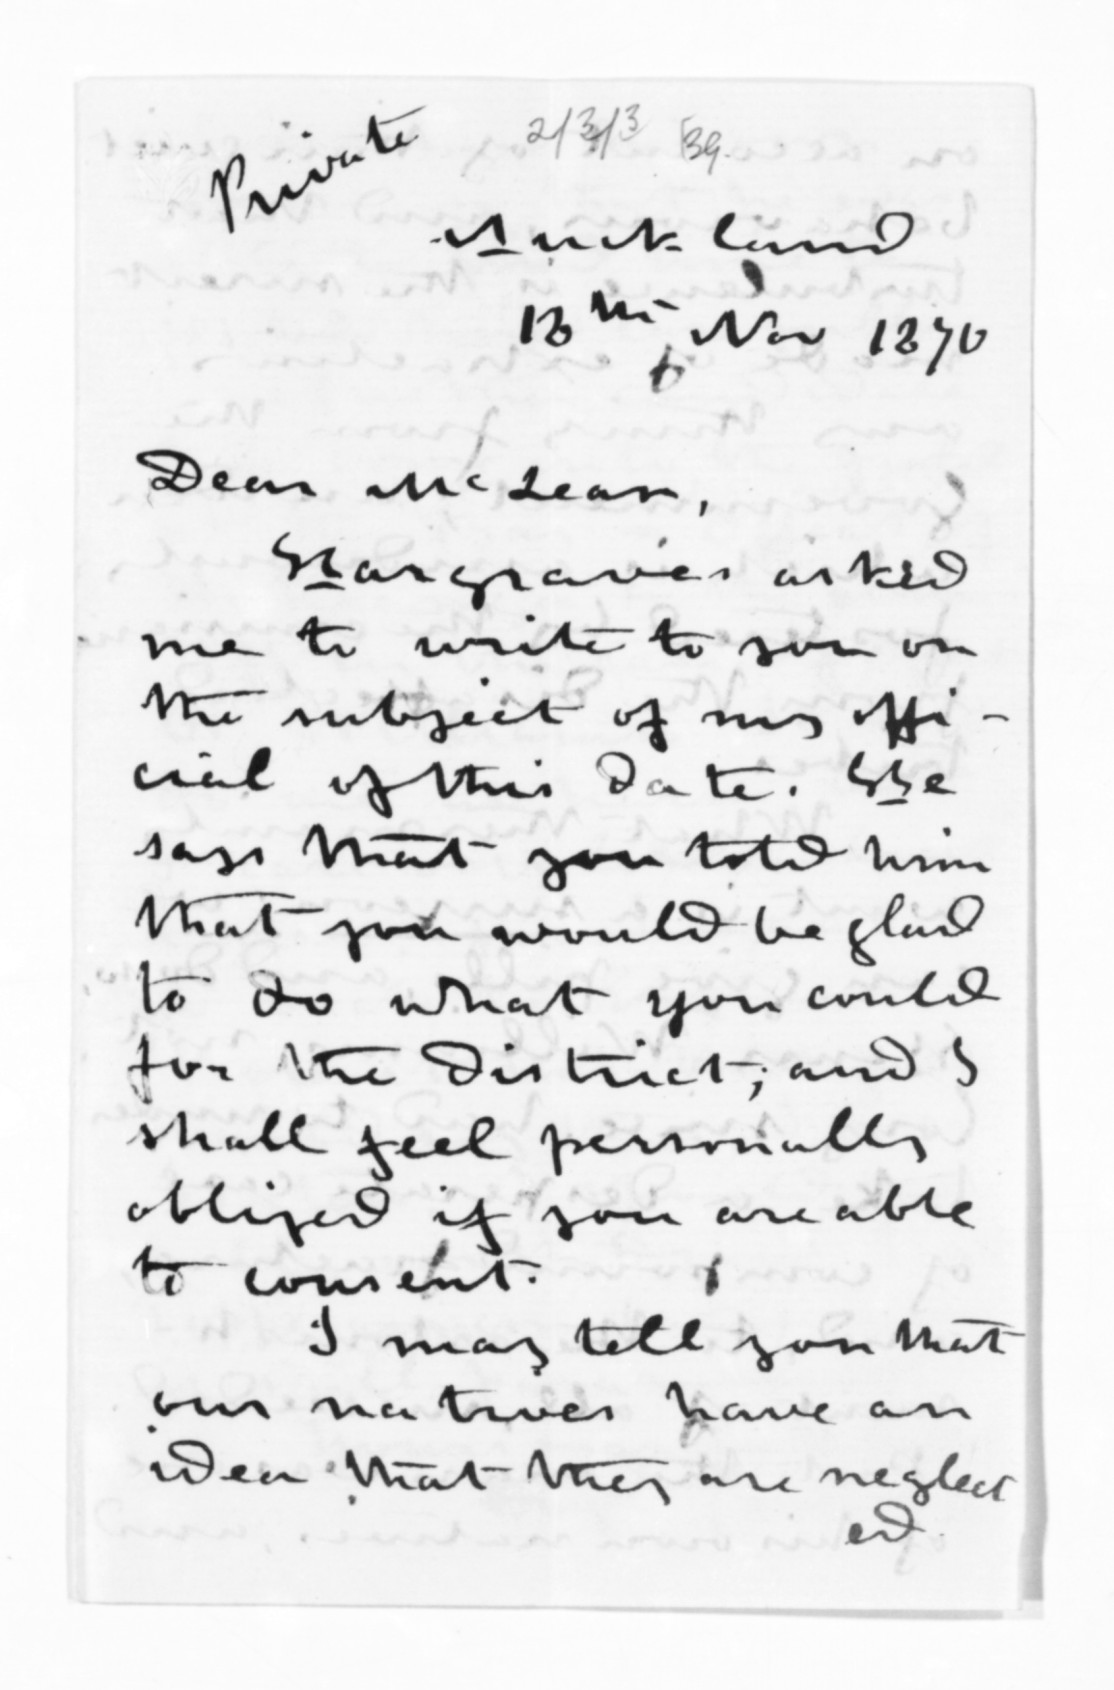 Private
2/3/3 39.
Auckland
18th Nov 1870
Dear McLean,
Hargraves asked
me to write to you on
the subject of my offi-
cial of this date. He
says that you told him
that you would be glad
to do what you could
for the district; and I
shall feel personally
obliged if you are able
to consent.
I may tell you that
our natives have an
idea that they are neglect
ed